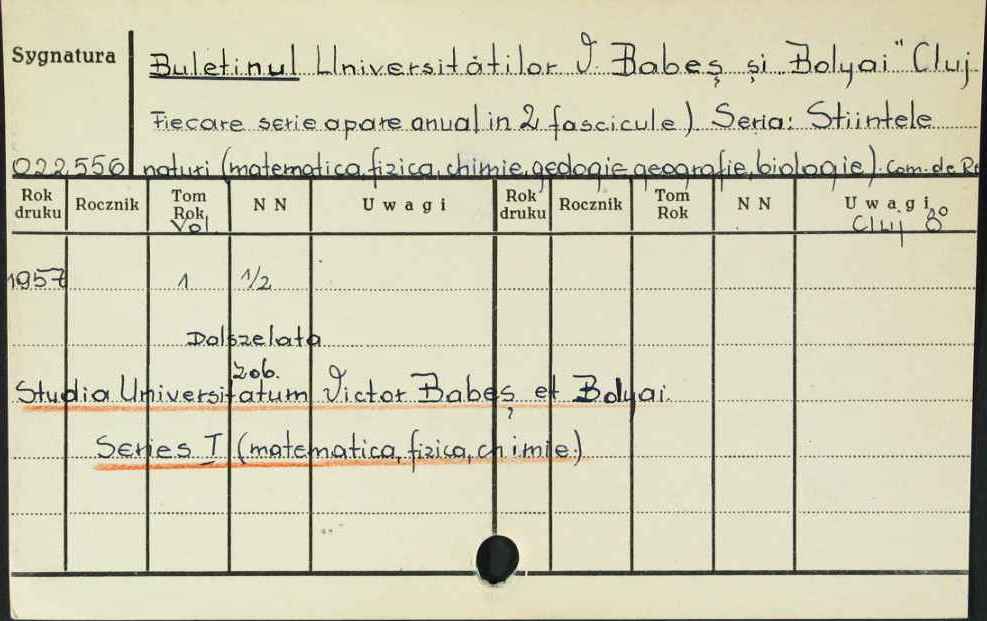 Sygnatura
Buletinul Universităţilor V. Babeş şi „Bolyai" Cluj
Fiecare serie apare anual in 2 fascicule) Seria: Stiintele
022556 naturi (matematica, fizica, chimie, geologie geografie, biologie). Com. de Re
Rok druku Rocznik Tom Rok NN Uwagi Rok druku Rocznik Tom Rok NN Uwagi
Vol. Cluj 8°
1957 1 1/2
Dalsze lata
zob.
Studia Universitatum Victor Babeş et Bolyai.
Series I (matematica, fizica, chimie.)